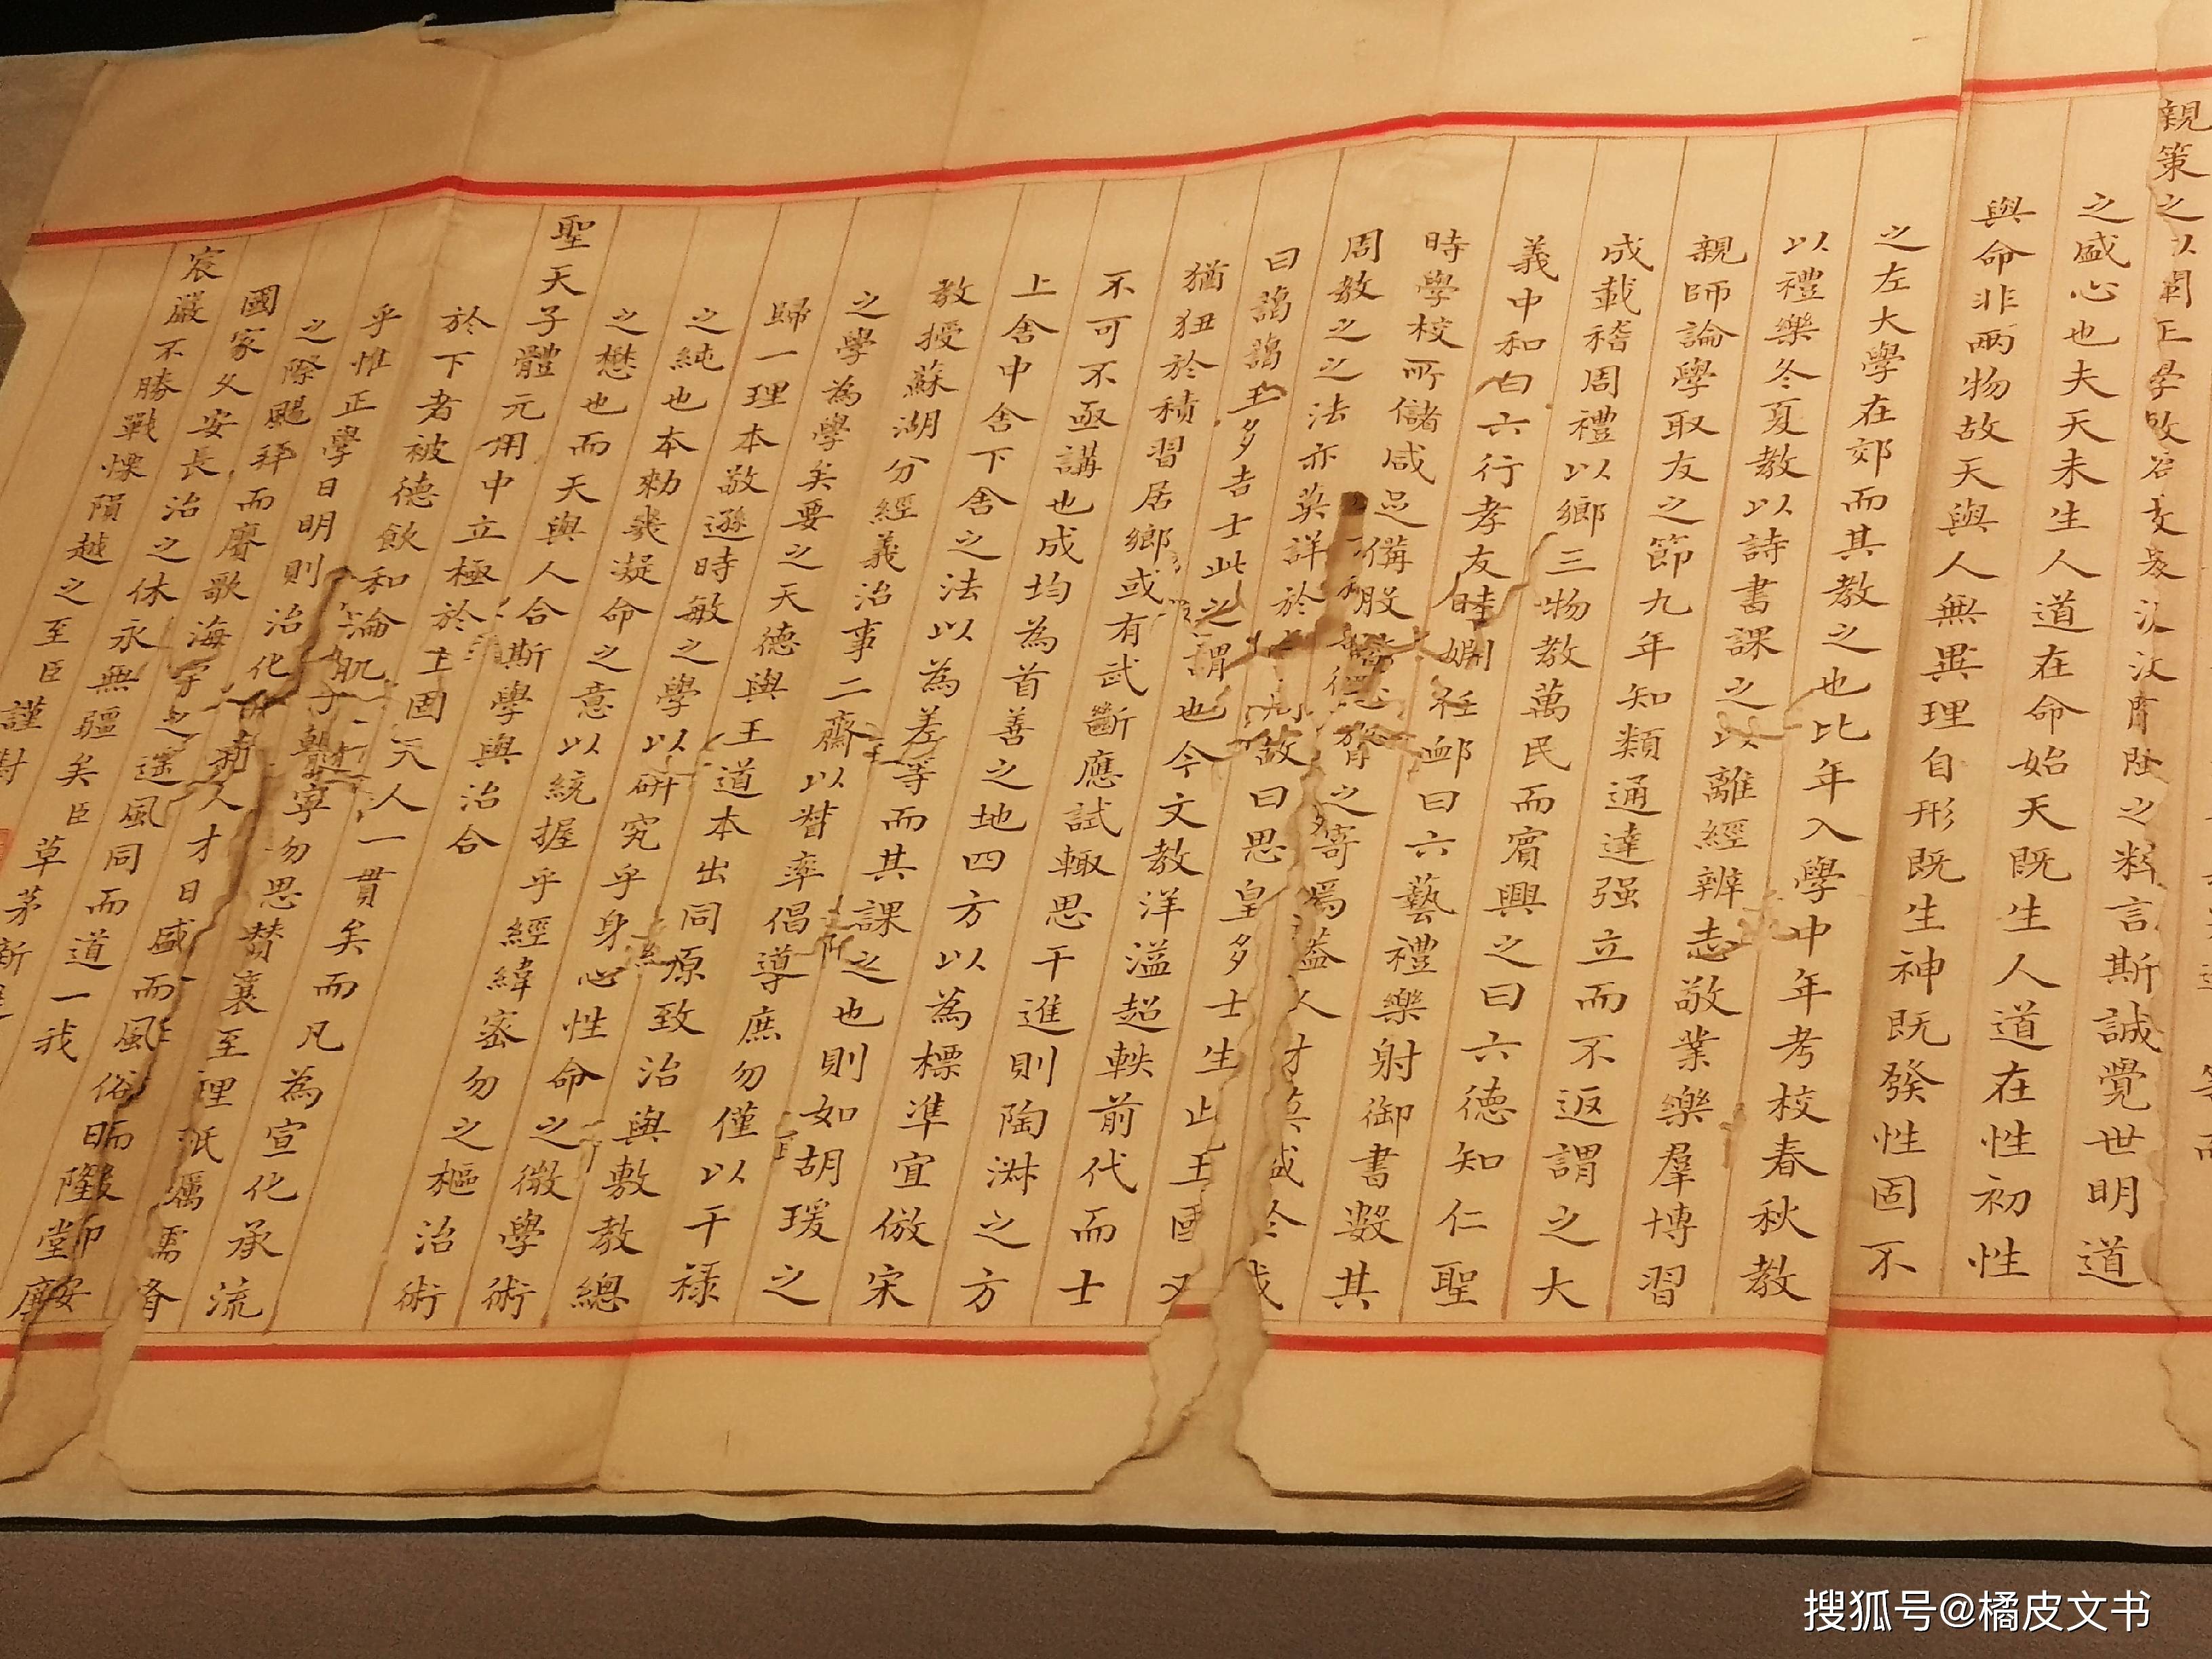 親策之以闡正學
之盛心也夫天未生人道在命始天既生人道在性初性
與命非兩物故天與人無異理自形既生神既發性固不
之左大學在郊而其教之也比年入學中年考校春秋教
以禮樂冬夏教以詩書課之以離經辨志敬業樂羣博習
親師論學取友之節九年知類通達强立而不返謂之大
成載稽周禮以鄉三物教萬民而賓興之曰六德知仁聖
義中和曰六行孝友睦婣任卹曰六藝禮樂射御書數其
時學校所儲咸足備股肱心膂之寄焉蓋人才莫盛於成
周教之之法亦莫詳於故曰思皇多士生此王國又
曰藹藹王多吉士此之謂也今文教洋溢超軼前代而士
猶狃於積習居鄉或有武斷應試輒思干進則陶淑之方
不可不亟講也成均為首善之地四方以為標準宜倣宋
上舍中舍下舍之法以為差等而其課之也則如胡瑗之
教授蘇湖分經義治事二齋以督率倡導庶勿僅以干祿
之學為學矣要之天德與王道本出同原致治與敷教總
歸一理本敬遜時敏之學以研究乎身心性命之微學術
之純也本勑幾凝命之意以統握乎經緯密勿之樞治術
之懋也而天與人合斯學與治合
聖天子體元用中立極於上固天人一貫矣而凡為宣化承流
於下者被德飲和淪肌寧勿思贊襄至理祇厲儒脩
乎惟正學日明則治化人才日盛而風俗
之際颺拜而賡歌海宇之遥風同而道一我
國家久安長治之休永無疆矣臣草茅新
宸嚴不勝戰慄隕越之至臣謹對
搜狐号@橘皮文书